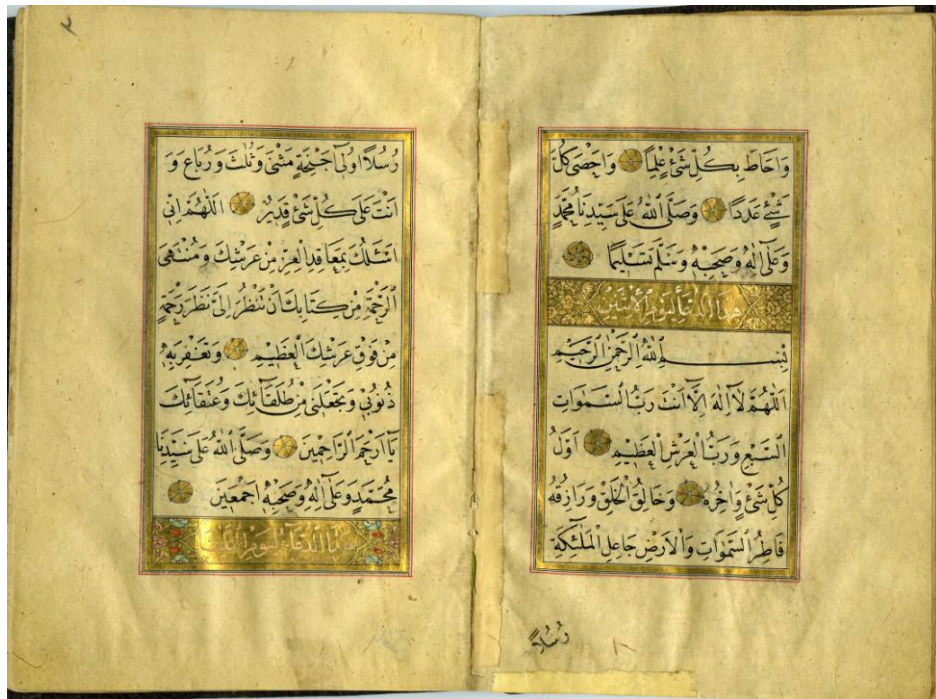 وَاَحَاطَ بِكُلِّ شَئْ عِلْمًا وَاَحْصٰى كُلَّ
شَئْ عَدَدًا وَصَلَّى اللّٰهُ عَلٰى سَيِّدِنَا مُحَمَّدٍ
وَعَلٰٓى اٰلِهٖ وَصَحْبِهٖ وَسَلَّمَ تَسْلِيمًا
هٰذَا الدُّعَأُ لِيَوْمِ الْاِثْنَيْنِ
بِسْمِ اللّٰهِ الرَّحْمٰنِ الرَّحِيمِ
اَللّٰهُمَّ لَآ اِلٰهَ اِلَّآ اَنْتَ رَبُّ السَّمٰوَاتِ
السَّبْعِ وَرَبُّ الْعَرْشِ الْعَظِيمِ اَوَّلُ
كُلِّ شَئْ وَاٰخِرُهُ وَخَالِقُ الْخَلْقِ وَرَازِقُهُ
فَاطِرُ السَّمٰوَاتِ وَالْاَرْضِ جَاعِلِ الْمَلٰٓئِكَةِ
رُسُلًا
٢
رُسُلًا اُولٓى اَجْنِحَةٍ مَثْنٰى وَثُلٰثَ وَرُبَاعَ وَ
اَنْتَ عَلٰى كُلِّ شَئْ قَدِيرٌ اَللّٰهُمَّ اِنِّى
اَسْئَلُكَ بِمَعَاقِدِ الْعِزِّ مِنْ عَرْشِكَ وَمُنْتَهَى
الرَّحْمَةِ مِنْ كِتَابِكَ اَنْ تَنْظُرَ اِلَىَّ نَظَرَ رَحْمَةٍ
مِنْ فَوْقِ عَرْشِكَ الْعَظِيمِ وَتَغْفِرَ بِهٖ
ذُنُوبِى وَتَجْعَلَنِى مِنْ طُلَقَآئِكَ وَعُتَقَآئِكَ
يَآ اَرْحَمَ الرَّاحِمِينَ وَصَلَّى اللّٰهُ عَلٰى سَيِّدِنَا
مُحَمَّدٍ وَعَلٰٓى اٰلِهٖ وَصَحْبِهٖ اَجْمَعِينَ
هٰذَا الدُّعَآءُ لِيَوْمِ